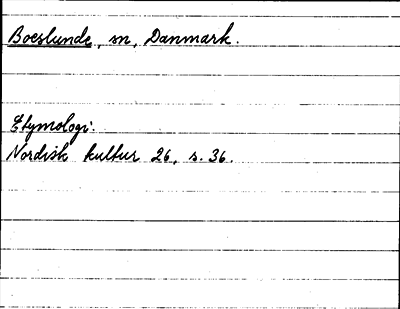 Boeslunde, sn, Danmark.
Etymologi:
Nordisk kultur 26, s. 36.